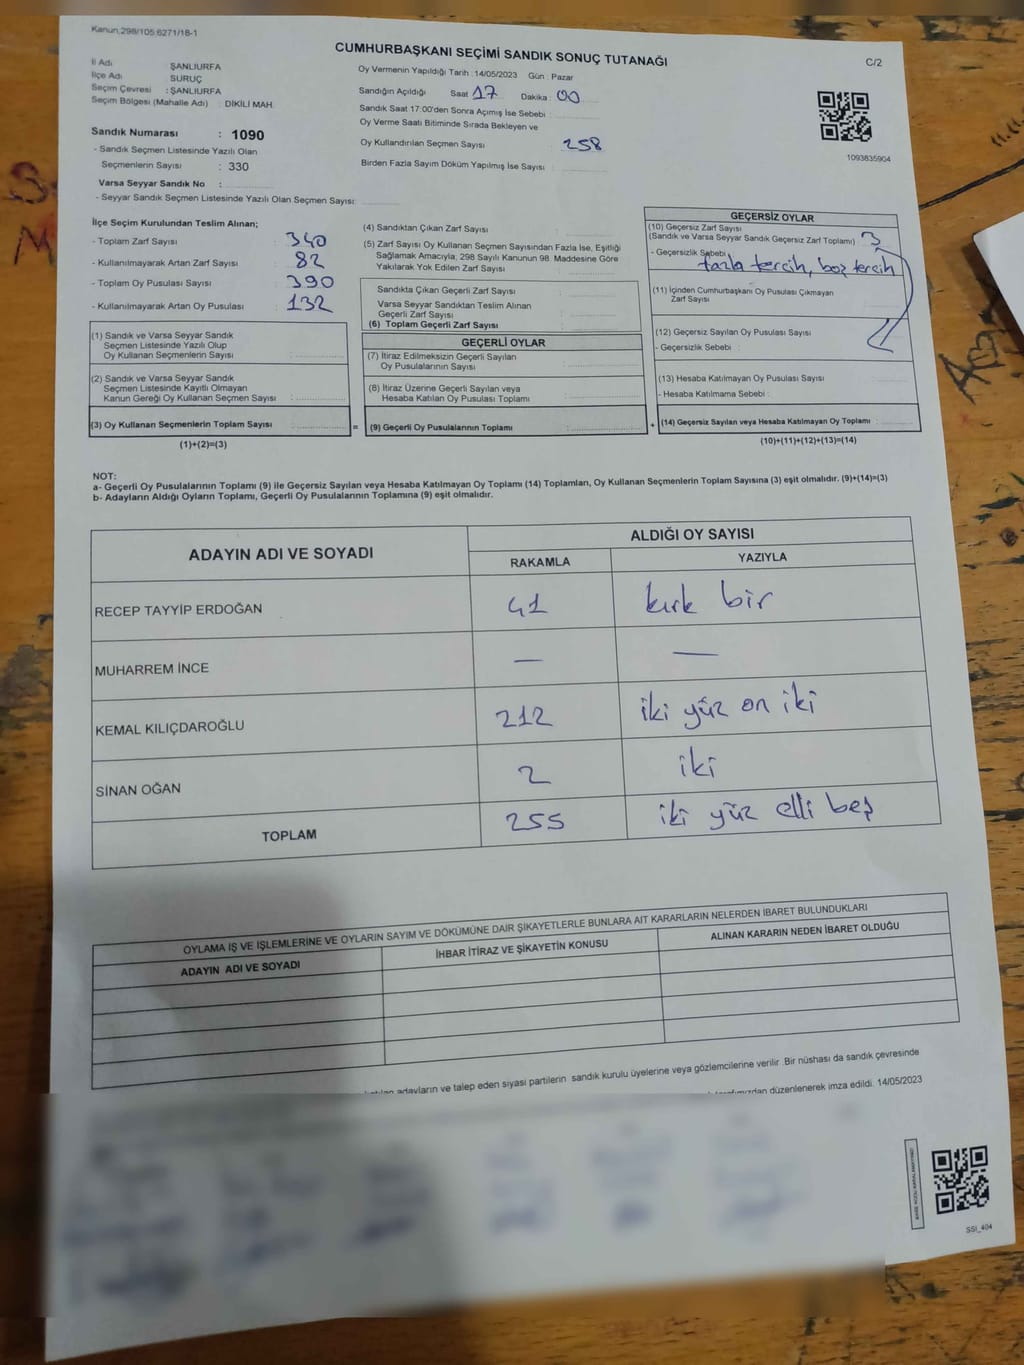 Kanun,298/105,6271/18-1
CUMHURBAŞKANI SEÇİMİ SANDIK SONUÇ TUTANAĞI
C/2
İl Adı ŞANLIURFA
İlçe Adı SURUÇ
Seçim Çevresi : ŞANLIURFA
Seçim Bölgesi (Mahalle Adı) : DİKİLİ MAH.
Sandık Numarası : 1090
- Sandık Seçmen Listesinde Yazılı Olan
Seçmenlerin Sayısı : 330
Varsa Seyyar Sandık No :
- Seyyar Sandık Seçmen Listesinde Yazılı Olan Seçmen Sayısı:
Oy Vermenin Yapıldığı Tarih : 14/05/2023 Gün : Pazar
Sandığın Açıldığı Saat 17 Dakika : 00
Sandık Saat 17:00'den Sonra Açımış İse Sebebi :
Oy Verme Saati Bitiminde Sırada Bekleyen ve
Oy Kullandırılan Seçmen Sayısı : 258
Birden Fazla Sayım Döküm Yapılmış İse Sayısı :
1093835904
İlçe Seçim Kurulundan Teslim Alınan;
- Toplam Zarf Sayısı : 340
- Kullanılmayarak Artan Zarf Sayısı : 82
- Toplam Oy Pusulası Sayısı : 390
- Kullanılmayarak Artan Oy Pusulası : 132
(1) Sandık ve Varsa Seyyar Sandık
Seçmen Listesinde Yazılı Olup
Oy Kullanan Seçmenlerin Sayısı :
(2) Sandık ve Varsa Seyyar Sandık
Seçmen Listesinde Kayıtlı Olmayan
Kanun Gereği Oy Kullanan Seçmen Sayısı :
(3) Oy Kullanan Seçmenlerin Toplam Sayısı : =
(1)+(2)=(3)
(4) Sandıktan Çıkan Zarf Sayısı :
(5) Zarf Sayısı Oy Kullanan Seçmen Sayısından Fazla İse, Eşitliği
Sağlamak Amacıyla; 298 Sayılı Kanunun 98. Maddesine Göre
Yakılarak Yok Edilen Zarf Sayısı :
Sandıkta Çıkan Geçerli Zarf Sayısı :
Varsa Seyyar Sandıktan Teslim Alınan
Geçerli Zarf Sayısı :
(6) Toplam Geçerli Zarf Sayısı :
GEÇERLİ OYLAR
(7) İtiraz Edilmeksizin Geçerli Sayılan
Oy Pusulalarının Sayısı :
(8) İtiraz Üzerine Geçerli Sayılan veya
Hesaba Katılan Oy Pusulası Toplamı :
(9) Geçerli Oy Pusulalarının Toplamı : +
GEÇERSİZ OYLAR
(10) Geçersiz Zarf Sayısı
(Sandık ve Varsa Seyyar Sandık Geçersiz Zarf Toplamı) : 3
- Geçersizlik Sebebi :
fazla tercih, boş tercih
(11) İçinden Cumhurbaşkanı Oy Pusulası Çıkmayan
Zarf Sayısı :
(12) Geçersiz Sayılan Oy Pusulası Sayısı :
- Geçersizlik Sebebi :
(13) Hesaba Katılmayan Oy Pusulası Sayısı :
- Hesaba Katılmama Sebebi :
(14) Geçersiz Sayılan veya Hesaba Katılmayan Oy Toplamı :
(10)+(11)+(12)+(13)=(14)
NOT:
a- Geçerli Oy Pusulalarının Toplamı (9) ile Geçersiz Sayılan veya Hesaba Katılmayan Oy Toplamı (14) Toplamları, Oy Kullanan Seçmenlerin Toplam Sayısına (3) eşit olmalıdır. (9)+(14)=(3)
b- Adayların Aldığı Oyların Toplamı, Geçerli Oy Pusulalarının Toplamına (9) eşit olmalıdır.
ADAYIN ADI VE SOYADI
ALDIĞI OY SAYISI
RAKAMLA YAZIYLA
RECEP TAYYİP ERDOĞAN 41 kırk bir
MUHARREM İNCE — —
KEMAL KILIÇDAROĞLU 212 iki yüz on iki
SİNAN OĞAN 2 iki
TOPLAM 255 iki yüz elli beş
OYLAMA İŞ VE İŞLEMLERİNE VE OYLARIN SAYIM VE DÖKÜMÜNE DAİR ŞİKAYETLERLE BUNLARA AİT KARARLARIN NELERDEN İBARET BULUNDUKLARI
ADAYIN ADI VE SOYADI İHBAR İTİRAZ VE ŞİKAYETİN KONUSU ALINAN KARARIN NEDEN İBARET OLDUĞU
adayların ve talep eden siyasi partilerin sandık kurulu üyelerine veya gözlemcilerine verilir. Bir nüshası da sandık çevresinde
düzenlenerek imza edildi. 14/05/2023
SSİ_404